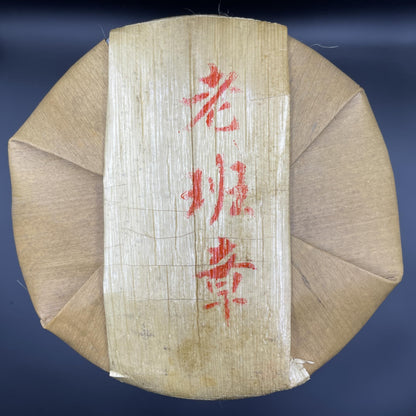 老班章